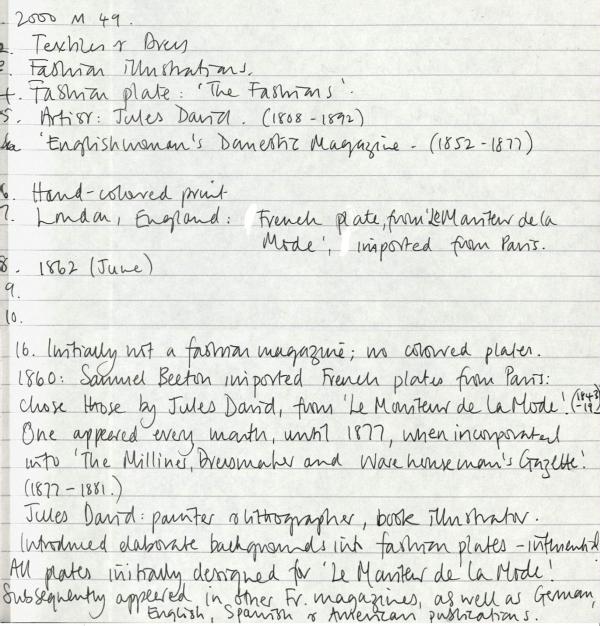 2000 M 49.
2. Textiles & Dress
3. Fashion illustrations.
4. Fashion plate: 'The Fashions'.
5. Artist: Jules David. (1808-1892)
'Englishwoman's Domestic Magazine - (1852-1877)
6. Hand-colored print
7. London, England: French plate, from 'Le Moniteur de la
Mode', imported from Paris.
8. 1862 (June)
9.
10.
16. Initially not a fashion magazine; no coloured plates.
1860: Samuel Beeton imported French plates from Paris:
chose those by Jules David, from 'Le Moniteur de La Mode'. (1843
One appeared every month, until 1877, when incorporated
into 'The Milliner, Dressmaker and Warehouseman's Gazette'.
(1877-1881.)
Jules David: painter & lithographer, book illustrator.
Introduced elaborate backgrounds into fashion plates -
All plates initially designed for 'Le Moniteur de la Mode'.
Subsequently appeared in other Fr. magazines, as well as German,
English, Spanish & American publications.